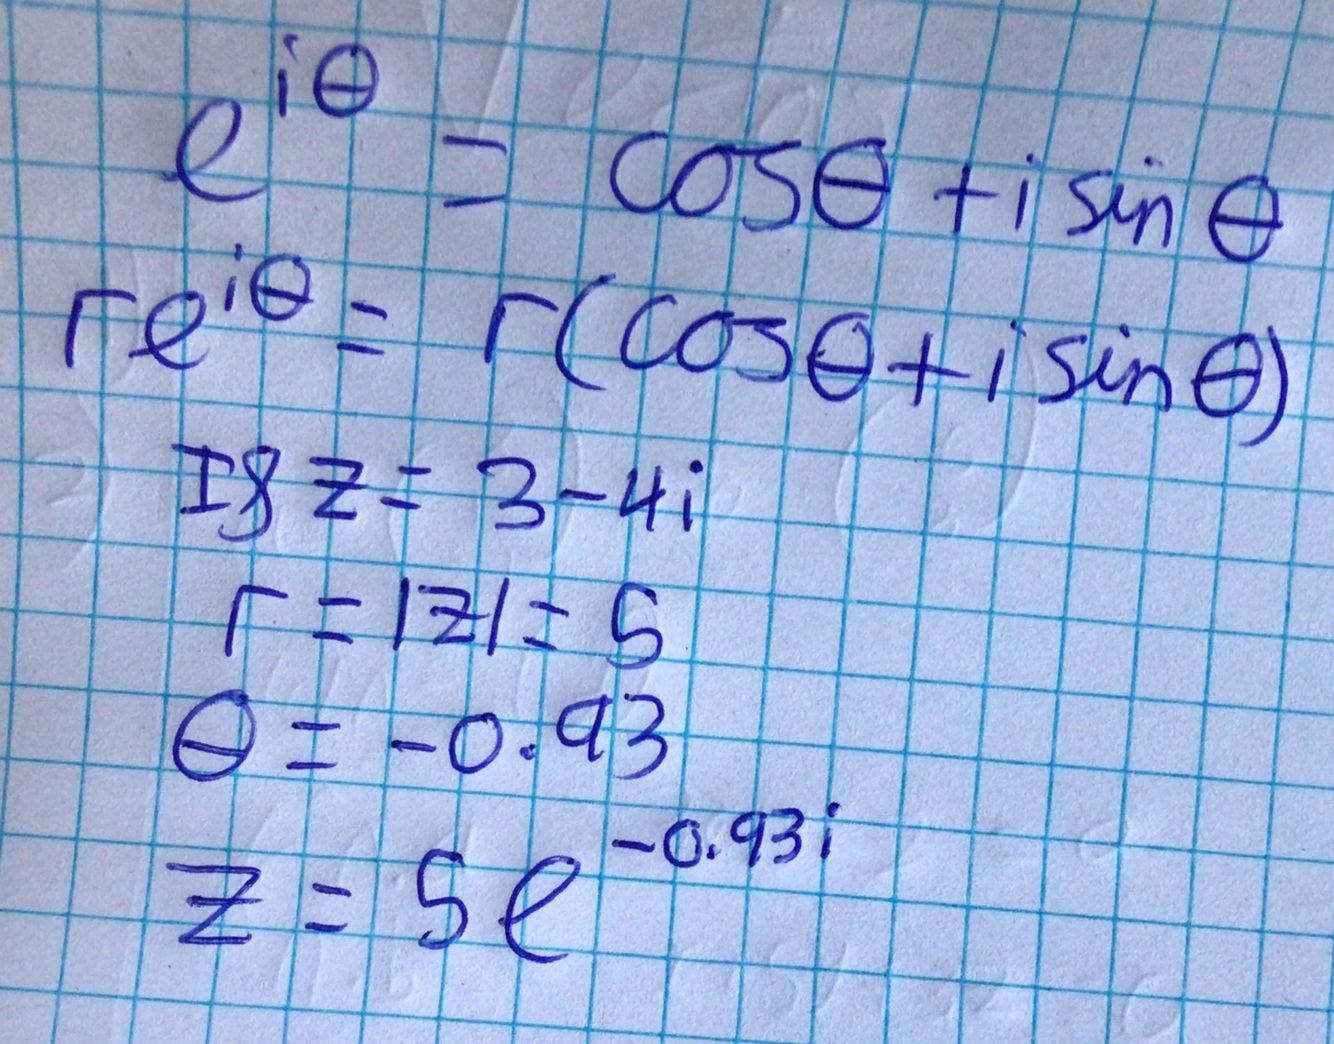 e^{iθ} = cosθ + i sin θ
re^{iθ} = r(cosθ + i sinθ)
If z = 3 - 4i
r = |z| = 5
θ = -0.93
z = 5e^{-0.93i}